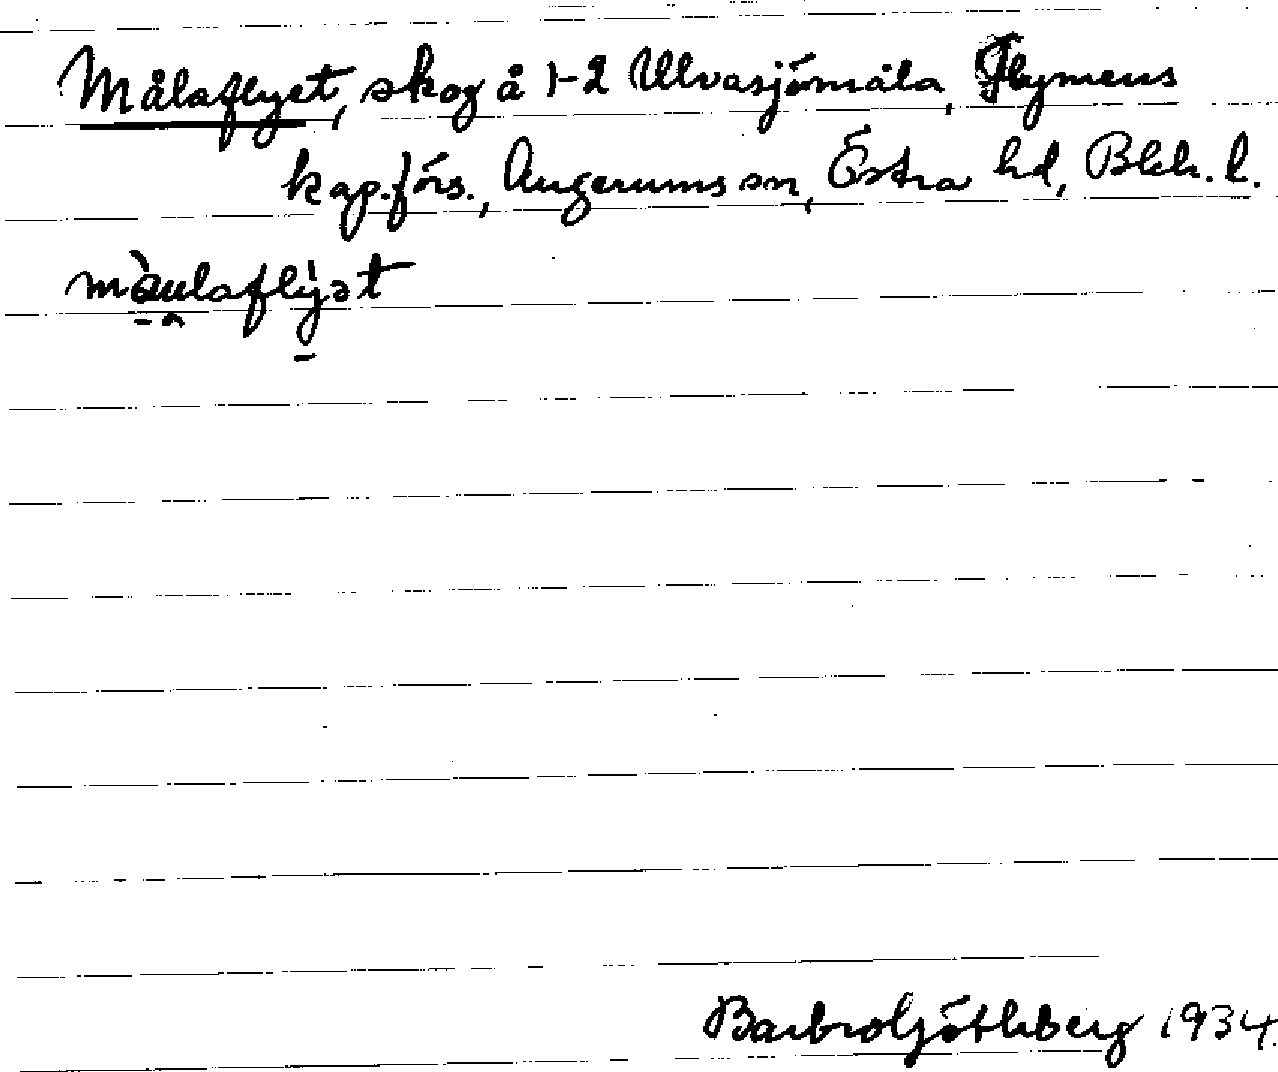 Målaflyet, skog å 1-2 Ulvasjömåla, Flymens
kap.förs., Augerums sn, Östra hd, Blek. l.
må̀u̯laflẏət
Barbro Göthberg 1934.